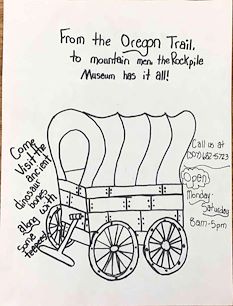 From the Oregon Trail,
to mountain men, the Rockpile
Museum has it all!
Come
Visit the
ancient
dinosaur
bones
along with
some
teepees!
Call us at
(307) 682-5723
Open
Monday-
Saturday
8am-5pm